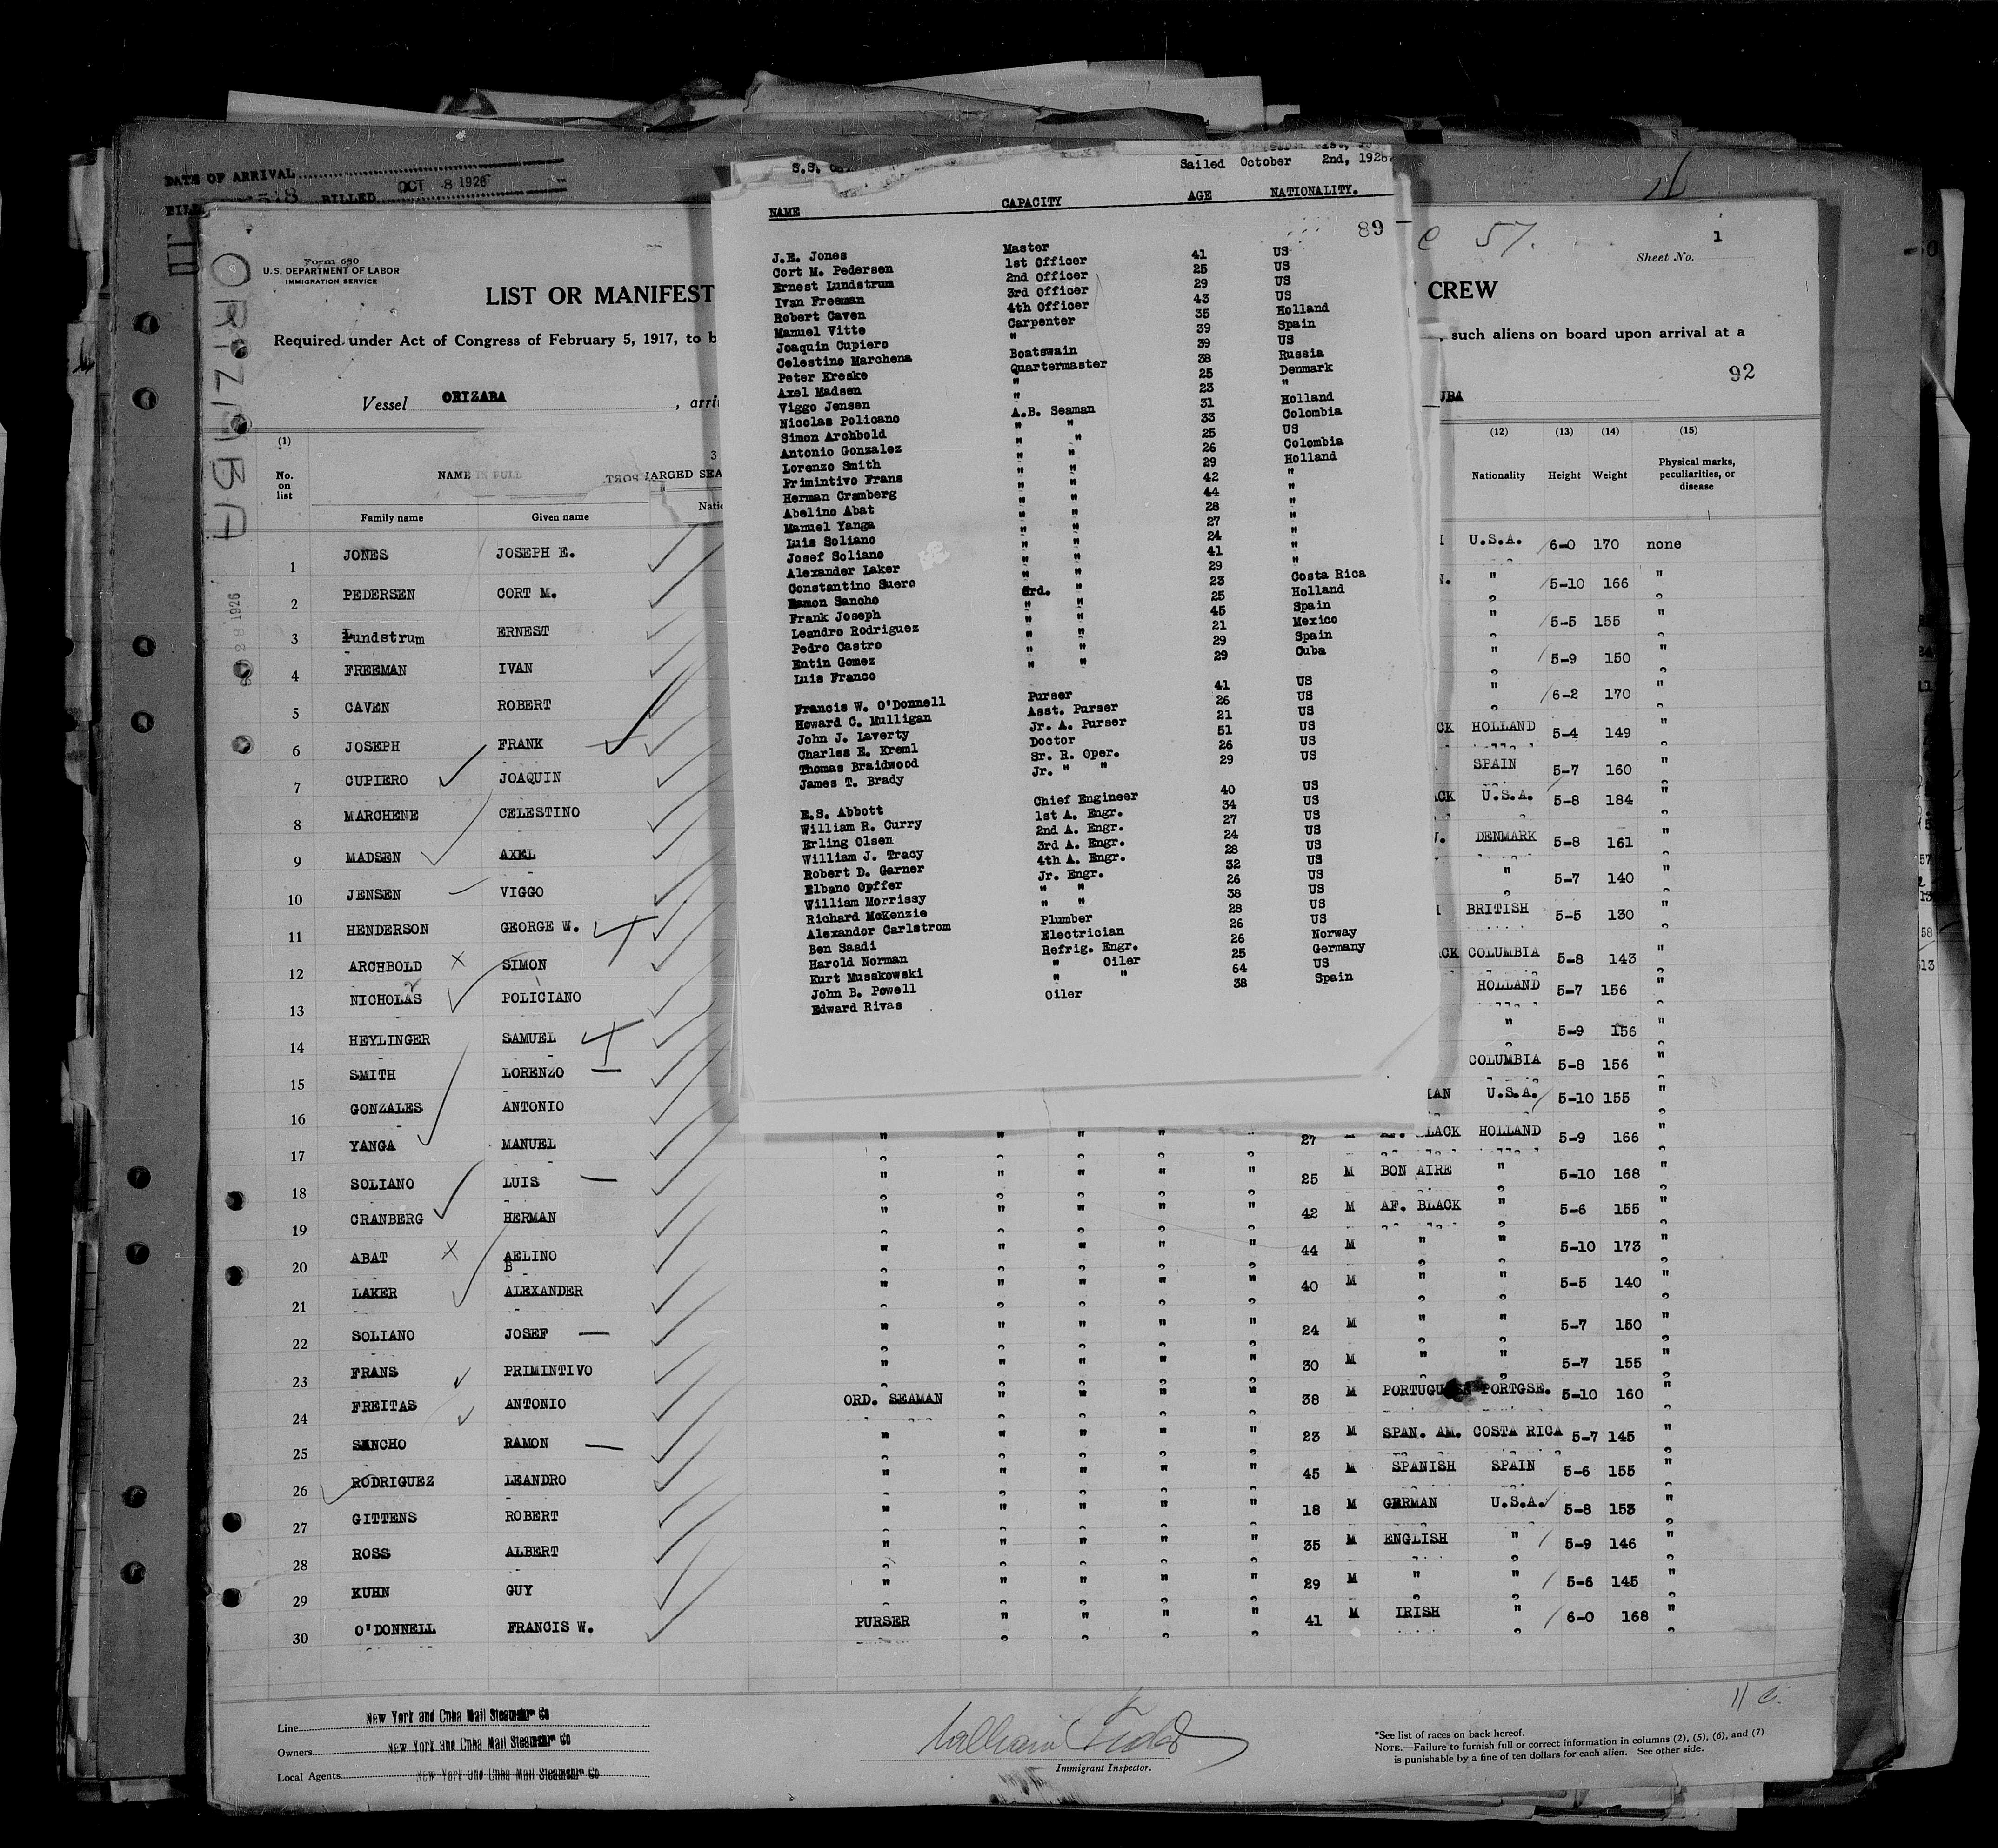 DATE OF ARRIVAL
OCT 8 1926
BILLED
ORIZABA
Form 680
U.S. DEPARTMENT OF LABOR
IMMIGRATION SERVICE
LIST OR MANIFEST
CREW
Sheet No. 1
57.
Required under Act of Congress of February 5, 1917, to b
such aliens on board upon arrival at a
92
Vessel ORIZABA , arri
UBA
(1) (12) (13) (14) (15)
No. on list
NAME IN FULL
Family name Given name
Nationality Height Weight Physical marks, peculiarities, or disease
1 JONES JOSEPH E. U.S.A. 6-0 170 none
2 PEDERSEN CORT M. " 5-10 166 "
3 Lundstrum ERNEST " 5-5 155 "
4 FREEMAN IVAN " 5-9 150 "
5 CAVEN ROBERT " 6-2 170 "
6 JOSEPH FRANK CK HOLLAND 5-4 149 "
7 CUPIERO JOAQUIN SPAIN 5-7 160 "
8 MARCHENE CELESTINO ACK U.S.A. 5-8 184 "
9 MADSEN AXEL DENMARK 5-8 161 "
10 JENSEN VIGGO " 5-7 140 "
11 HENDERSON GEORGE W. BRITISH 5-5 130 "
12 ARCHBOLD SIMON CK COLUMBIA 5-8 143 "
13 NICHOLAS POLICIANO HOLLAND 5-7 156 "
14 HEYLINGER SAMUEL " 5-9 156 "
15 SMITH LORENZO COLUMBIA 5-8 156 "
16 GONZALES ANTONIO AN U.S.A. 5-10 155 "
17 YANGA MANUEL " " " " " 27 M AF. BLACK HOLLAND 5-9 166 "
18 SOLIANO LUIS " " " " " 25 M BON AIRE " 5-10 168 "
19 CRANBERG HERMAN " " " " " 42 M AF. BLACK " 5-6 155 "
20 ABAT AELINO B " " " " " 44 M " " 5-10 173 "
21 LAKER ALEXANDER " " " " " 40 M " " 5-5 140 "
22 SOLIANO JOSEF " " " " " 24 M " " 5-7 150 "
23 FRANS PRIMINTIVO " " " " " 30 M " " 5-7 155 "
24 FREITAS ANTONIO ORD. SEAMAN " " " " 38 M PORTUGUESE PORTGSE. 5-10 160 "
25 SANCHO RAMON " " " " " 23 M SPAN. AM. COSTA RICA 5-7 145 "
26 RODRIGUEZ LEANDRO " " " " " 45 M SPANISH SPAIN 5-6 155 "
27 GITTENS ROBERT " " " " " 18 M GERMAN U.S.A. 5-8 153 "
28 ROSS ALBERT " " " " " 35 M ENGLISH " 5-9 146 "
29 KUHN GUY " " " " " 29 M " " 5-6 145 "
30 O'DONNELL FRANCIS W. PURSER " " " " 41 M IRISH " 6-0 168 "
S.S.
Sailed October 2nd, 1926
NAME CAPACITY AGE NATIONALITY.
89
J.E. Jones Master 41 US
Cort M. Pedersen 1st Officer 25 US
Ernest Lundstrum 2nd Officer 29 US
Ivan Freeman 3rd Officer 43 US
Robert Caven 4th Officer 35 Holland
Manuel Vitte Carpenter 39 Spain
Joaquin Cupiero " 39 US
Celestino Marchena Boatswain 38 Russia
Peter Kreske Quartermaster 25 Denmark
Axel Madsen " 23 "
Viggo Jensen " 31 Holland
Nicolas Policano A.B. Seaman 33 Colombia
Simon Archbold " " 25 US
Antonio Gonzalez " " 26 Colombia
Lorenzo Smith " " 29 Holland
Primintivo Frans " " 42 "
Herman Cramberg " " 44 "
Abelino Abat " " 28 "
Manuel Yanga " " 27 "
Luis Soliano " " 24 "
Josef Soliano " " 41 "
Alexander Laker " " 29 "
Constantino Suero " " 23 Costa Rica
Ramon Sancho Ord. " 25 Holland
Frank Joseph " " 45 Spain
Leandro Rodriguez " " 21 Mexico
Pedro Castro " " 29 Spain
Entin Gomez " " 29 Cuba
Luis Franco " "
Francis W. O'Donnell Purser 41 US
Howard C. Mulligan Asst. Purser 26 US
John J. Laverty Jr. A. Purser 21 US
Charles E. Kreml Doctor 51 US
Thomas Braidwood Sr. R. Oper. 26 US
James T. Brady Jr. " " 29 US
E.S. Abbott Chief Engineer 40 US
William R. Curry 1st A. Engr. 34 US
Erling Olsen 2nd A. Engr. 27 US
William J. Tracy 3rd A. Engr. 24 US
Robert D. Garner 4th A. Engr. 28 US
Elbano Opffer Jr. Engr. 32 US
William Morrissy " " 26 US
Richard McKenzie " " 38 US
Alexandor Carlstrom Plumber 28 US
Ben Saadi Electrician 26 US
Harold Norman Refrig. Engr. 26 Norway
Kurt Musakowski " Oiler 25 Germany
John B. Powell " " 64 US
Edward Rivas Oiler 38 Spain
Line New York and Cuba Mail Steamship Co
Owners New York and Cuba Mail Steamship Co
Local Agents New York and Cuba Mail Steamship Co
Immigrant Inspector.
*See list of races on back hereof.
NOTE.—Failure to furnish full or correct information in columns (2), (5), (6), and (7)
is punishable by a fine of ten dollars for each alien. See other side.